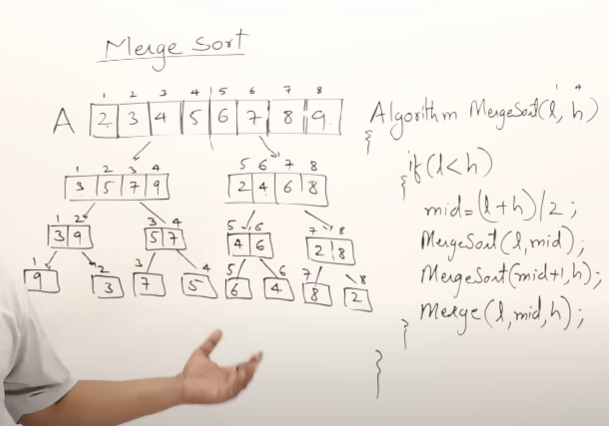 Merge Sort
1 2 3 4 5 6 7 8
A 2 3 4 5 6 7 8 9
1 2 3 4
3 5 7 9
5 6 7 8
2 4 6 8
1 2
3 9
3 4
5 7
5 6
4 6
7 8
2 8
1 2 3 4 5 6 7 8
9 3 7 5 6 4 8 2
1 4
Algorithm MergeSort(l, h)
{
if(l<h)
{
mid=(l+h)/2;
MergeSort(l,mid);
MergeSort(mid+1,h);
Merge(l,mid,h);
}
}